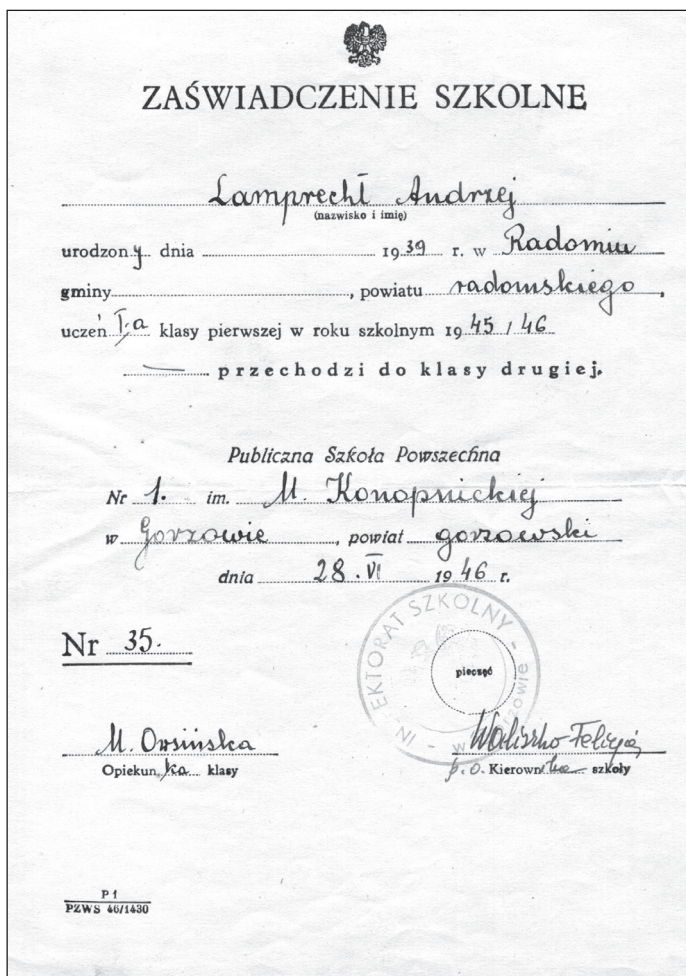 ZAŚWIADCZENIE SZKOLNE
Lamprecht Andrzej
(nazwisko i imię)
urodzony dnia 1939 r. w Radomiu
gminy, powiatu radomskiego,
uczeń I.a klasy pierwszej w roku szkolnym 1945/46
— przechodzi do klasy drugiej.
Publiczna Szkoła Powszechna
Nr 1. im. M. Konopnickiej
w Gorzowie, powiat gorzowski
dnia 28.VI 1946 r.
Nr 35.
INSPEKTORAT SZKOLNY - w Gorzowie -
pieczęć
M. Orsińska
Opiekunka klasy
Waliszko Felicja
p.o. Kierowniczka szkoły
P 1
PZWS 46/1430